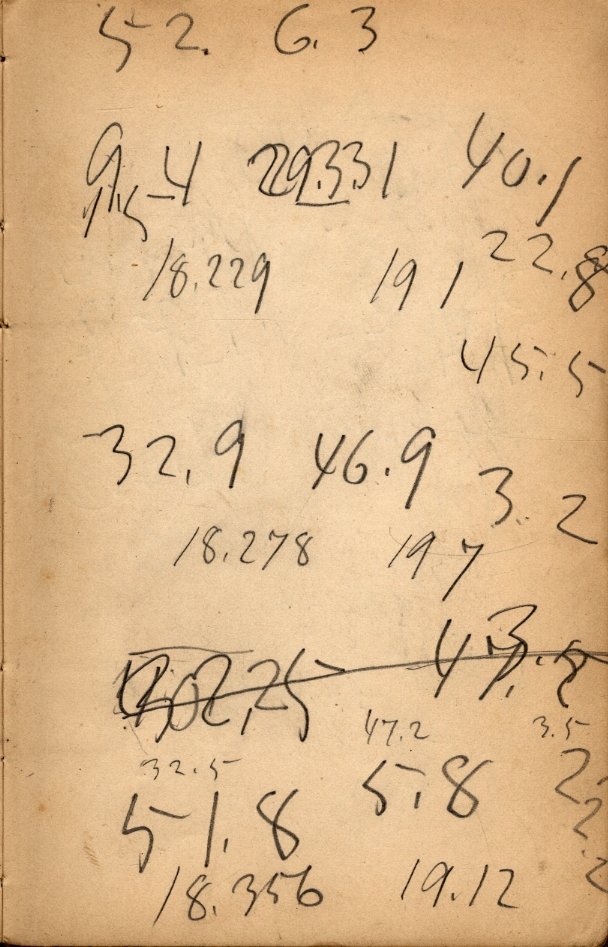 52. 6.3
9.4 29.331 40.1
11.5
18.229 191 22.8
45.5
32.9 46.9 3.2
18.278 197
47.2 3.5
32.5
51.8 5.8 22.2
18.356 19.12